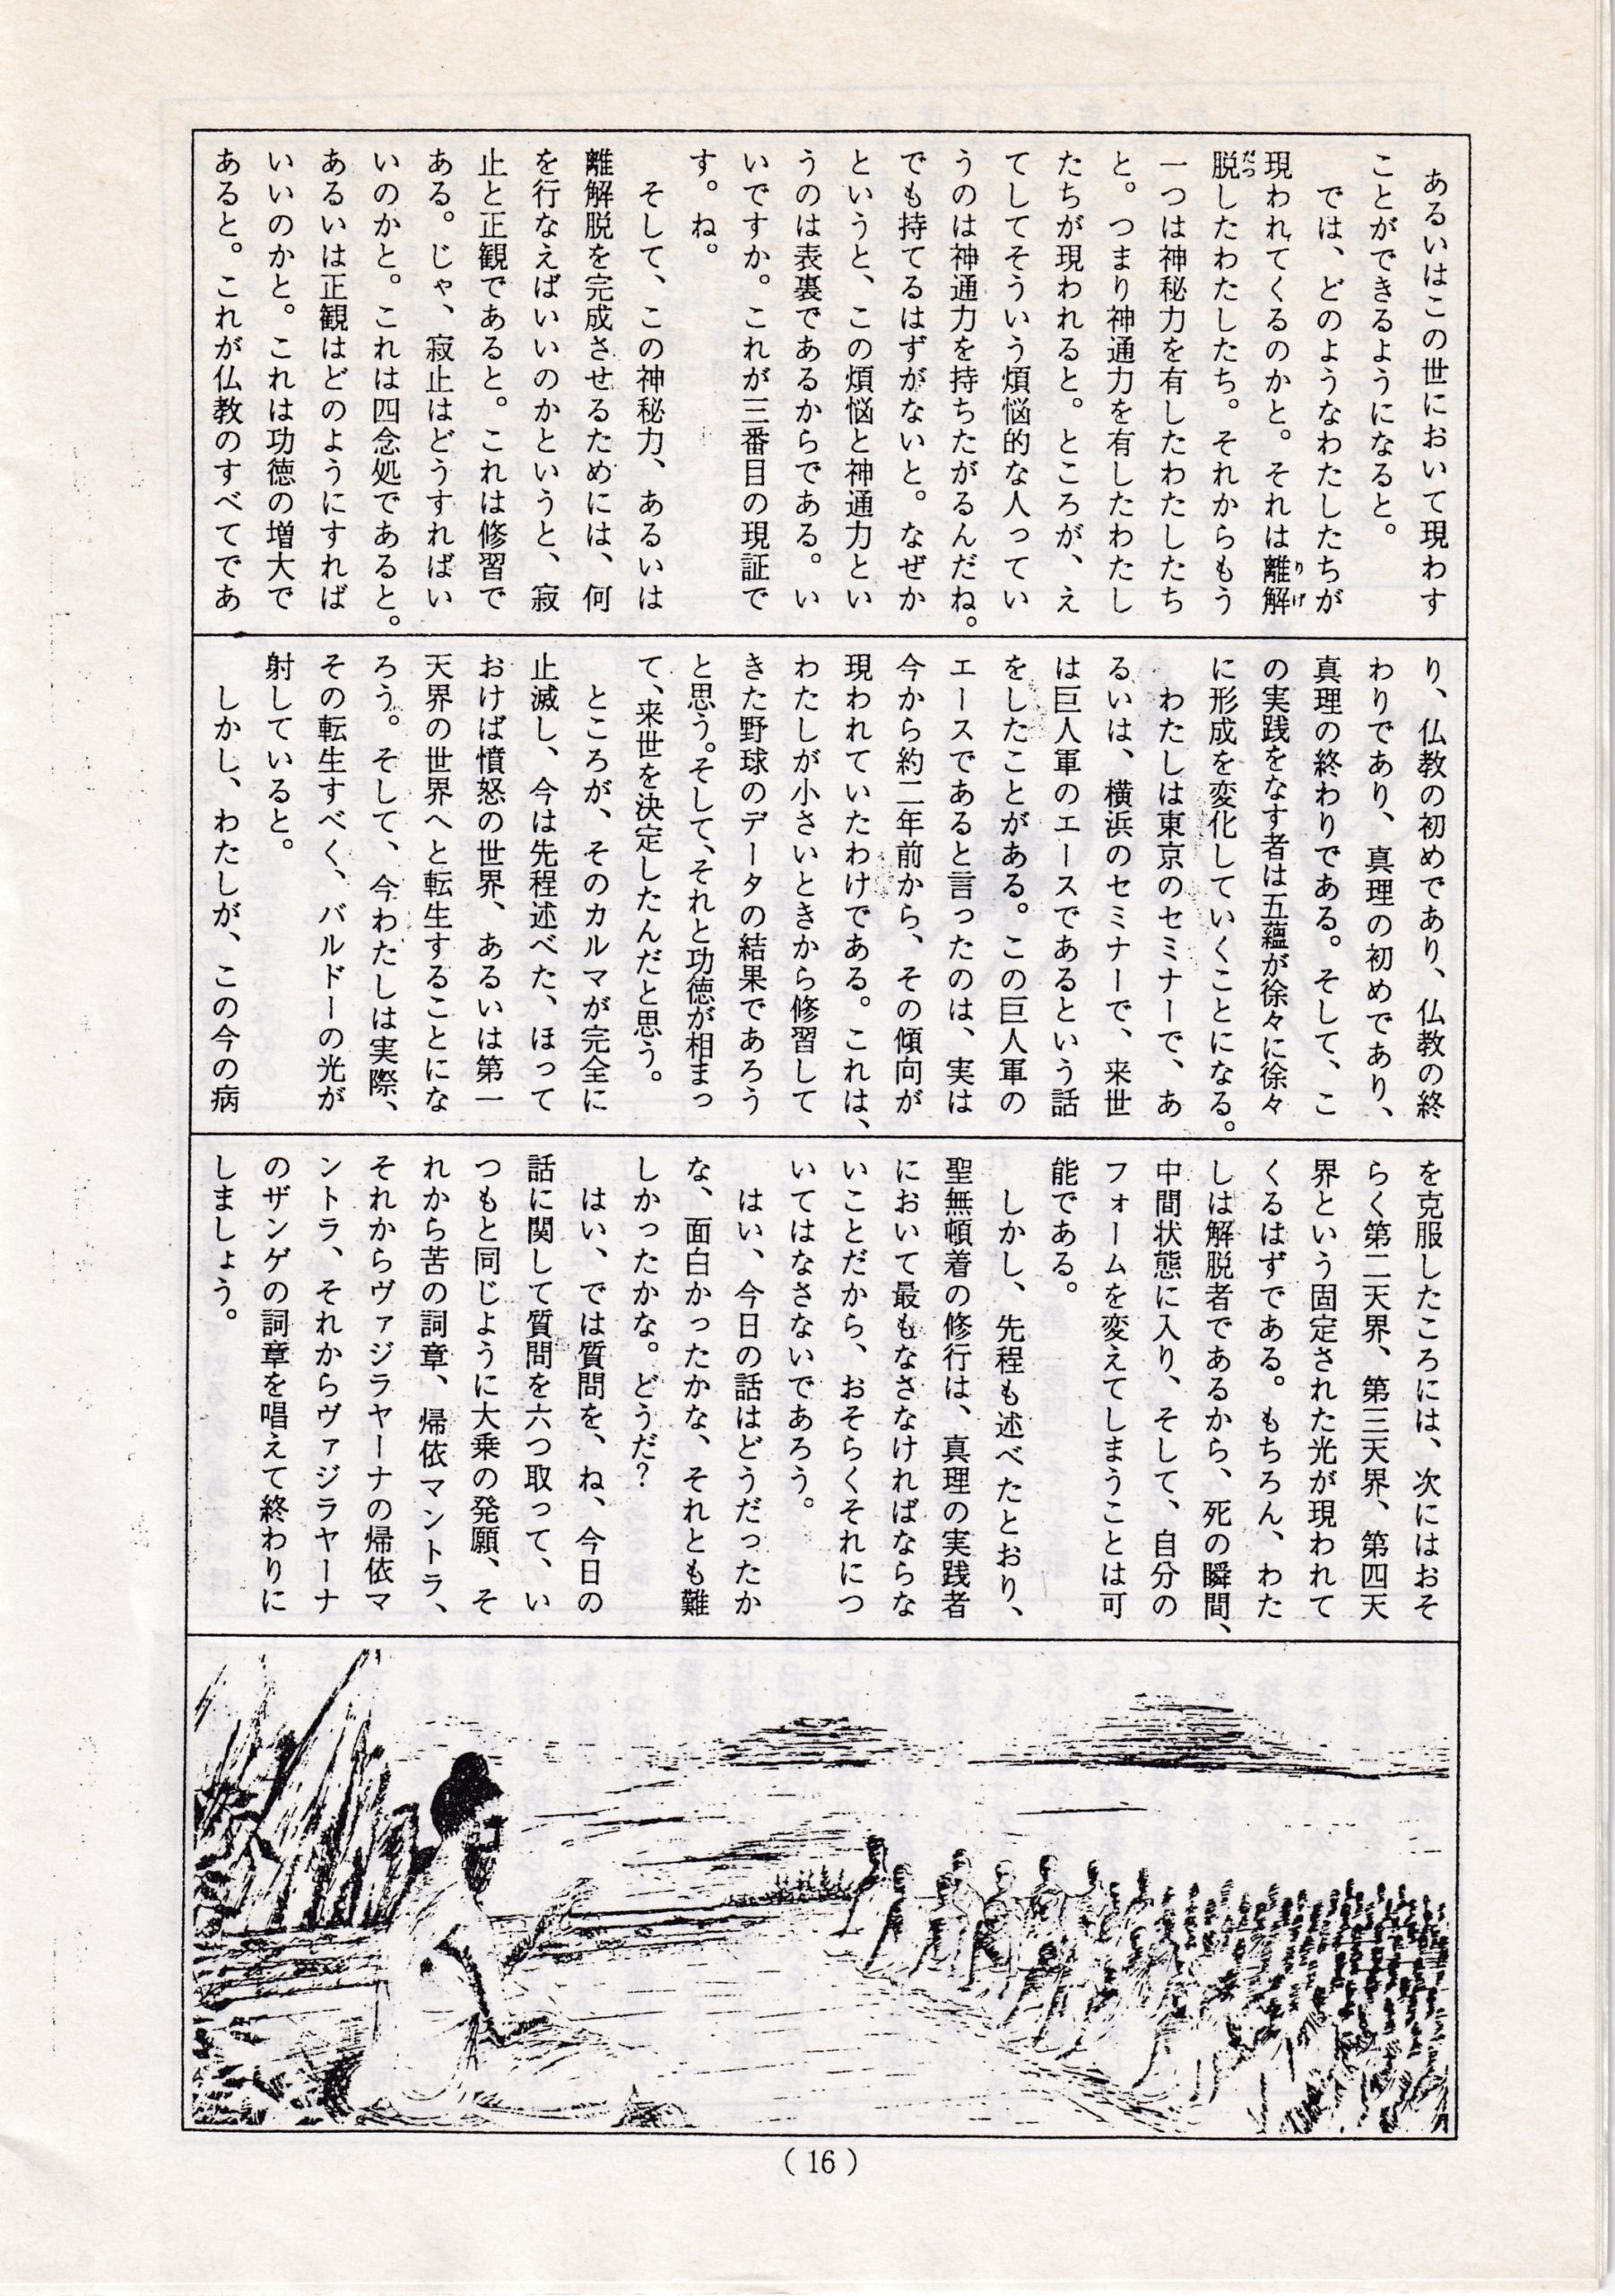 あるいはこの世において現わす
ことができるようになると。
では、どのようなわたしたちが
現われてくるのかと。それは離解
りげ
脱したわたしたち。それからもう
だつ
一つは神秘力を有したわたしたち
と。つまり神通力を有したわたし
たちが現われると。ところが、え
てしてそういう煩悩的な人ってい
うのは神通力を持ちたがるんだね。
でも持てるはずがないと。なぜか
というと、この煩悩と神通力とい
うのは表裏であるからである。い
いですか。これが三番目の現証で
す。ね。
そして、この神秘力、あるいは
離解脱を完成させるためには、何
を行なえばいいのかというと、寂
止と正観であると。これは修習で
ある。じゃ、寂止はどうすればい
いのかと。これは四念処であると。
あるいは正観はどのようにすれば
いいのかと。これは功徳の増大で
あると。これが仏教のすべてであ
り、仏教の初めであり、仏教の終
わりであり、真理の初めであり、
真理の終わりである。そして、こ
の実践をなす者は五蘊が徐々に徐々
に形成を変化していくことになる。
わたしは東京のセミナーで、あ
るいは、横浜のセミナーで、来世
は巨人軍のエースであるという話
をしたことがある。この巨人軍の
エースであると言ったのは、実は
今から約二年前から、その傾向が
現われていたわけである。これは、
わたしが小さいときから修習して
きた野球のデータの結果であろう
と思う。そして、それと功徳が相まっ
て、来世を決定したんだと思う。
ところが、そのカルマが完全に
止滅し、今は先程述べた、ほって
おけば憤怒の世界、あるいは第一
天界の世界へと転生することにな
ろう。そして、今わたしは実際、
その転生すべく、バルドーの光が
射していると。
しかし、わたしが、この今の病
を克服したころには、次にはおそ
らく第二天界、第三天界、第四天
界という固定された光が現われて
くるはずである。もちろん、わた
しは解脱者であるから、死の瞬間、
中間状態に入り、そして、自分の
フォームを変えてしまうことは可
能である。
しかし、先程も述べたとおり、
聖無頓着の修行は、真理の実践者
において最もなさなければならな
いことだから、おそらくそれにつ
いてはなさないであろう。
はい、今日の話はどうだったか
な、面白かったかな、それとも難
しかったかな。どうだ？
はい、では質問を、ね、今日の
話に関して質問を六つ取って、い
つもと同じように大乗の発願、そ
れから苦の詞章、帰依マントラ、
それからヴァジラヤーナの帰依マ
ントラ、それからヴァジラヤーナ
のザンゲの詞章を唱えて終わりに
しましょう。
（16）